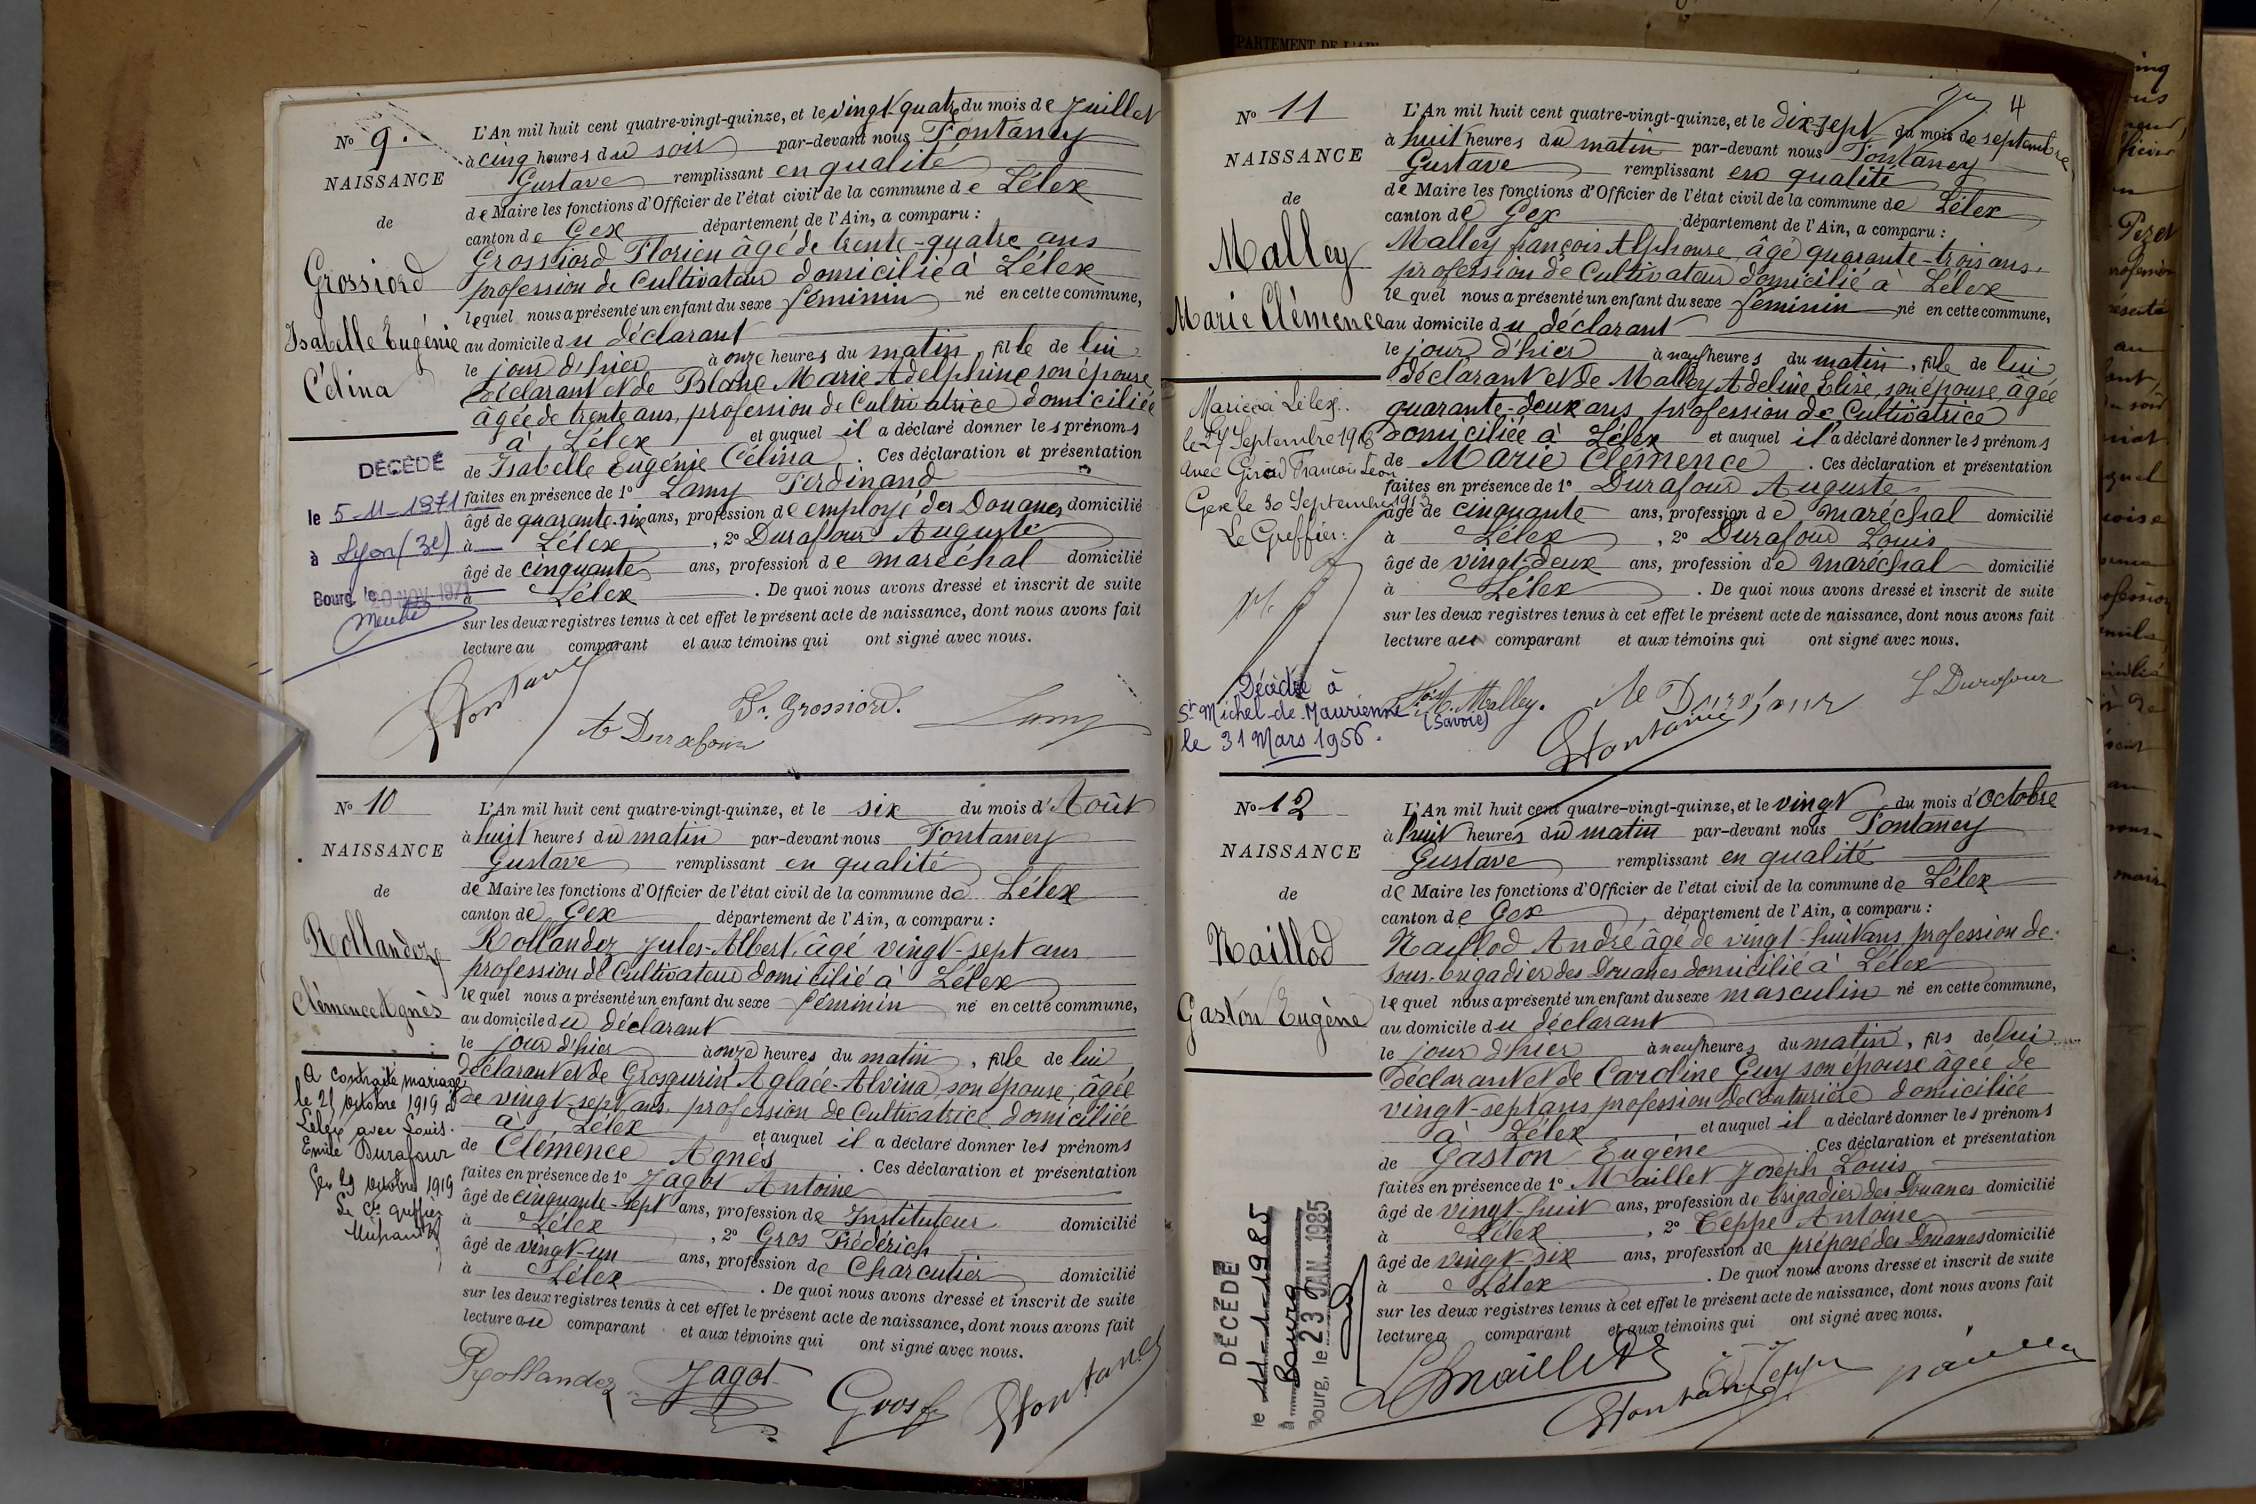 N° 9.
NAISSANCE
de
Grossiord
Isabelle Eugénie
Célina
DÉCÉDÉ
le 5-11-1971
à Lyon (3e)
Bourg, le 20 NOV. 1971
L'An mil huit cent quatre-vingt-quinze, et le vingt-quatre du mois de Juillet
à cinq heures du soir par-devant nous Fontaney
Gustave remplissant en qualité
de Maire les fonctions d'Officier de l'état civil de la commune de Lélex
canton de Gex département de l'Ain, a comparu :
Grossiord Florien âgé de trente-quatre ans
profession de Cultivateur domicilié à Lélex
lequel nous a présenté un enfant du sexe féminin né en cette commune,
au domicile du déclarant
le jour d'hier à onze heures du matin, fille de lui
déclarant et de Blanc Marie Adelphine son épouse
âgée de trente ans, profession de Cultivatrice domiciliée
à Lélex et auquel il a déclaré donner les prénoms
de Isabelle Eugénie Célina. Ces déclaration et présentation
faites en présence de 1° Lamy Ferdinand
âgé de quarante-six ans, profession de employé des Douanes domicilié
à Lélex, 2° Durafour Auguste
âgé de cinquante ans, profession de maréchal domicilié
à Lélex. De quoi nous avons dressé et inscrit de suite
sur les deux registres tenus à cet effet le présent acte de naissance, dont nous avons fait
lecture au comparant et aux témoins qui ont signé avec nous.
GFontaney
A Durafour
F. Grossiord.
Lamy
N° 10
NAISSANCE
de
Rollandez
Clémence Agnès
A contracté mariage
le 21 octobre 1919 à
Lélex avec Louis
Emile Durafour
Gex 29 octobre 1919
Le Cis greffier
L'An mil huit cent quatre-vingt-quinze, et le six du mois d'Août
à huit heures du matin par-devant nous Fontaney
Gustave remplissant en qualité
de Maire les fonctions d'Officier de l'état civil de la commune de Lélex
canton de Gex département de l'Ain, a comparu :
Rollandez Jules-Albert, âgé vingt-sept ans
profession de Cultivateur domicilié à Lélex
lequel nous a présenté un enfant du sexe féminin né en cette commune,
au domicile du déclarant
le jour d'hier à onze heures du matin, fille de lui
déclarant et de Grosgurin Aglaée-Alvina, son épouse, âgée
de vingt-sept ans, profession de Cultivatrice domiciliée
à Lélex et auquel il a déclaré donner les prénoms
de Clémence Agnès. Ces déclaration et présentation
faites en présence de 1° Jagot Antoine
âgé de cinquante-sept ans, profession de Instituteur domicilié
à Lélex, 2° Gros Frédérich
âgé de vingt-un ans, profession de Charcutier domicilié
à Lélex. De quoi nous avons dressé et inscrit de suite
sur les deux registres tenus à cet effet le présent acte de naissance, dont nous avons fait
lecture au comparant et aux témoins qui ont signé avec nous.
Rollandez
Jagot
Gros f
GFontaney
4
N° 11
NAISSANCE
de
Malley
Marie Clémence
Mariée à Lélex
le 27 Septembre 1913
avec Girod François Léon
Gex le 30 Septembre 1913
Le Greffier :
Décédée à
St Michel-de-Maurienne
(Savoie)
le 31 Mars 1956.
L'An mil huit cent quatre-vingt-quinze, et le dix-sept du mois de septembre
à huit heures du matin par-devant nous Fontaney
Gustave remplissant en qualité
de Maire les fonctions d'Officier de l'état civil de la commune de Lélex
canton de Gex département de l'Ain, a comparu :
Malley françois Alphonse, âgé quarante-trois ans,
profession de Cultivateur domicilié à Lélex
lequel nous a présenté un enfant du sexe féminin né en cette commune,
au domicile du déclarant
le jour d'hier à neuf heures du matin, fille de lui
déclarant et de Malley Adeline Elise, son épouse, âgée
quarante-deux ans profession de Cultivatrice
domiciliée à Lélex et auquel il a déclaré donner les prénoms
de Marie Clémence. Ces déclaration et présentation
faites en présence de 1° Durafour Auguste
âgé de cinquante ans, profession de maréchal domicilié
à Lélex, 2° Durafour Louis
âgé de vingt-deux ans, profession de maréchal domicilié
à Lélex. De quoi nous avons dressé et inscrit de suite
sur les deux registres tenus à cet effet le présent acte de naissance, dont nous avons fait
lecture au comparant et aux témoins qui ont signé avec nous.
Malley.
A Durafour
L Durafour
GFontaney
N° 12
NAISSANCE
de
Naillod
Gaston Eugène
DÉCÉDÉ
le 11-1-1985
à Bourg
Bourg, le 23 JAN. 1985
L'An mil huit cent quatre-vingt-quinze, et le vingt du mois d'octobre
à huit heures du matin par-devant nous Fontaney
Gustave remplissant en qualité
de Maire les fonctions d'Officier de l'état civil de la commune de Lélex
canton de Gex, département de l'Ain, a comparu :
Naillod André âgé de vingt-huit ans profession de
sous-brigadier des Douanes domicilié à Lélex
lequel nous a présenté un enfant du sexe masculin né en cette commune,
au domicile du déclarant
le jour d'hier à neuf heures du matin, fils de lui
déclarant et de Caroline Guy son épouse âgée de
vingt-sept ans profession de couturière domiciliée
à Lélex et auquel il a déclaré donner les prénoms
de Gaston Eugène. Ces déclaration et présentation
faites en présence de 1° Maillet Joseph Louis
âgé de vingt-huit ans, profession de brigadier des Douanes domicilié
à Lélex, 2° Teppe Antoine
âgé de vingt-six ans, profession de préposé des Douanes domicilié
à Lélex. De quoi nous avons dressé et inscrit de suite
sur les deux registres tenus à cet effet le présent acte de naissance, dont nous avons fait
lecture a comparant et aux témoins qui ont signé avec nous.
LMaillet
Teppe
GFontaney